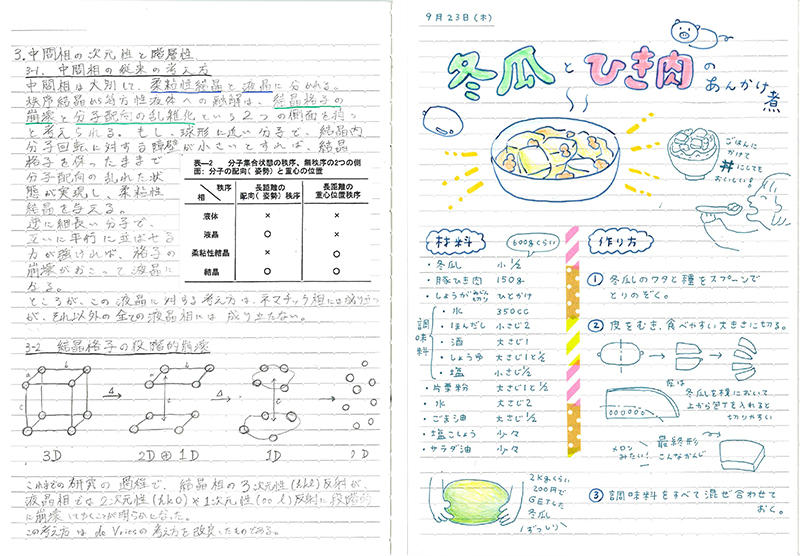 3.中間相の次元性と階層性
3-1. 中間相の従来の考え方
中間相は大別して、柔粘性結晶と液晶に分かれる。
秩序結晶から等方性液体への融解は、結晶格子の
崩壊と分子配向の乱雑化という2つの側面を持つ
と考えられる。もし、球形に近い分子で、結晶内
分子回転に対する障壁が小さいとすれば、結晶
格子を保ったままで
分子配向の乱れた状
態が実現し、柔粘性
結晶を与える。
逆に細長い分子で、
互いに平行に並ばせる
力が強ければ、格子の
崩壊がおこって液晶に
なる。
表―2 分子集合状態の秩序、無秩序の2つの側
面:分子の配向(姿勢)と重心の位置
秩序
相
長距離の
配向(姿勢)秩序
長距離の
重心位置秩序
液体 × ×
液晶 ○ ×
柔粘性結晶 × ○
結晶 ○ ○
ところが、この液晶に対する考え方は、ネマチック相には成り立つ
が、それ以外の全ての液晶相には成り立たない。
3-2 結晶格子の段階的崩壊
a b c Δ a b Δ c Δ
3D 2D⊕1D 1D 0D
これまでの研究の過程で、結晶相の3次元性(hkl)反射が、
液晶相では2次元性(hk0)や1次元性(00l)反射に段階的
に崩壊していくことが明らかとなった。
この考え方はde Vriesの考え方を改良したものである。
9月23日(木)
冬瓜とひき肉の
あんかけ煮
ごはんに
かけて
丼にしても
おいしい!
材料
600gくらい
・冬瓜 小1/2
・豚ひき肉 150g
・しょうがみじん切り ひとかけ
調味料
・水 350cc
・ほんだし 小さじ2
・酒 大さじ1
・しょうゆ 大さじ1と1/2
・塩 小さじ1/2
・片栗粉 大さじ1と1/2
・水 大さじ2
・ごま油 大さじ1/2
・塩こしょう 少々
・サラダ油 少々
2kgくらい
200円で
GETした
冬瓜
ずっしり
作り方
① 冬瓜のワタと種をスプーンで
とりのぞく。
② 皮をむき、食べやすい大きさに切る。
皮は
冬瓜を横において
上から包丁を入れると
切りやすい
メロン
みたい!
最終形
こんなかんじ
③ 調味料をすべて混ぜ合わせて
おく。